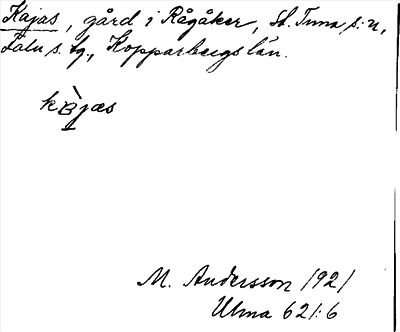 Kajas, gård i Rågåker, St. Tuna s:n,
Falu s. tg., Kopparbergs län.
kàjas
M. Andersson 1921
Ulma 621:6